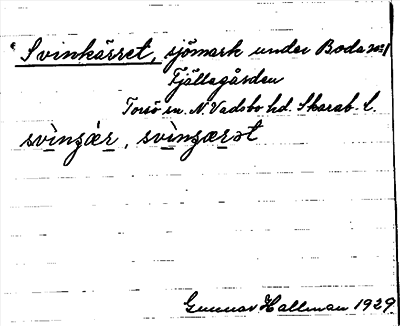 Svinkärret, sjömark under Boda nº1
Fjällagården
Torsö sn. N. Vadsbo hd. Skarab. l.
svìnʒæ̀r, svìnʒærət
Gunnar Hallman 1929